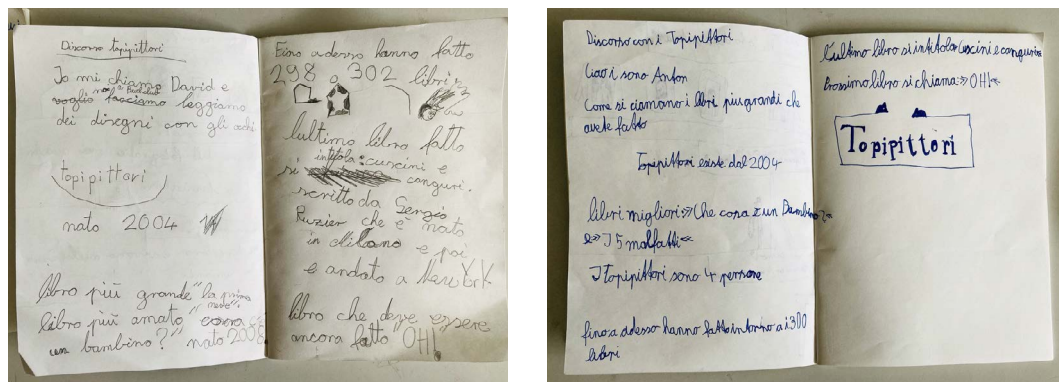 Discorso topipittori
Io mi chiamo David e
noi a
voglio facciamo leggiamo
dei disegni con gli occhi
topipittori
nato 2004
libro più grande "la prima
neve".
libro più amato
un bambino?" nato 2008
Fino adesso hanno fatto
298 o 302 libri
lultimo libro fatto
intitola: cuscini e
si canguri.
scritto da Sergio
Ruzier che è nato
in e poi
e andato a New York
libro che deve essere
ancora fatto "OH!"
Discorso con i Topipittori
Ciao i sono Anton
Come si ciamano i libri piu grandi che
avete fatto
Topipittori esiste dal 2004
libri migliori» Che cosa è un Bambino?«
e» I 5 malfatti«
I topipittori sono 4 persone
fino a adesso hanno fatto intorno a i 300
libri
L'ultimo libro si intitola Cuscini e canguri«
Prossimo libro si chiama:» OH!«
Topipittori